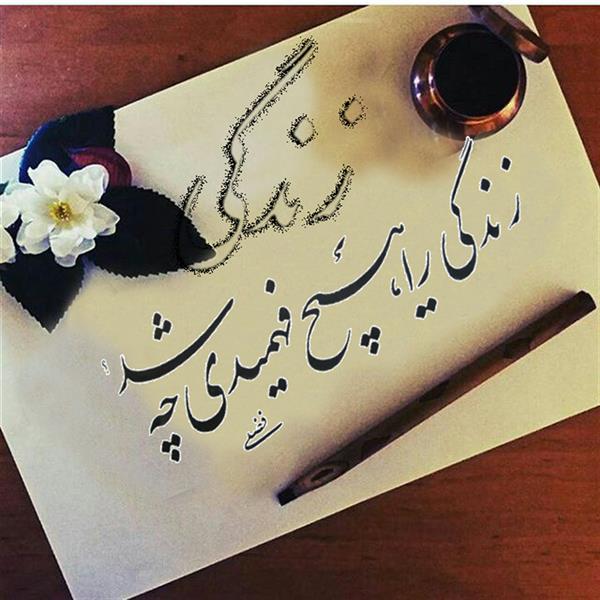 زندگی
زندگی را، هیچ فهمیدی چه شد؟